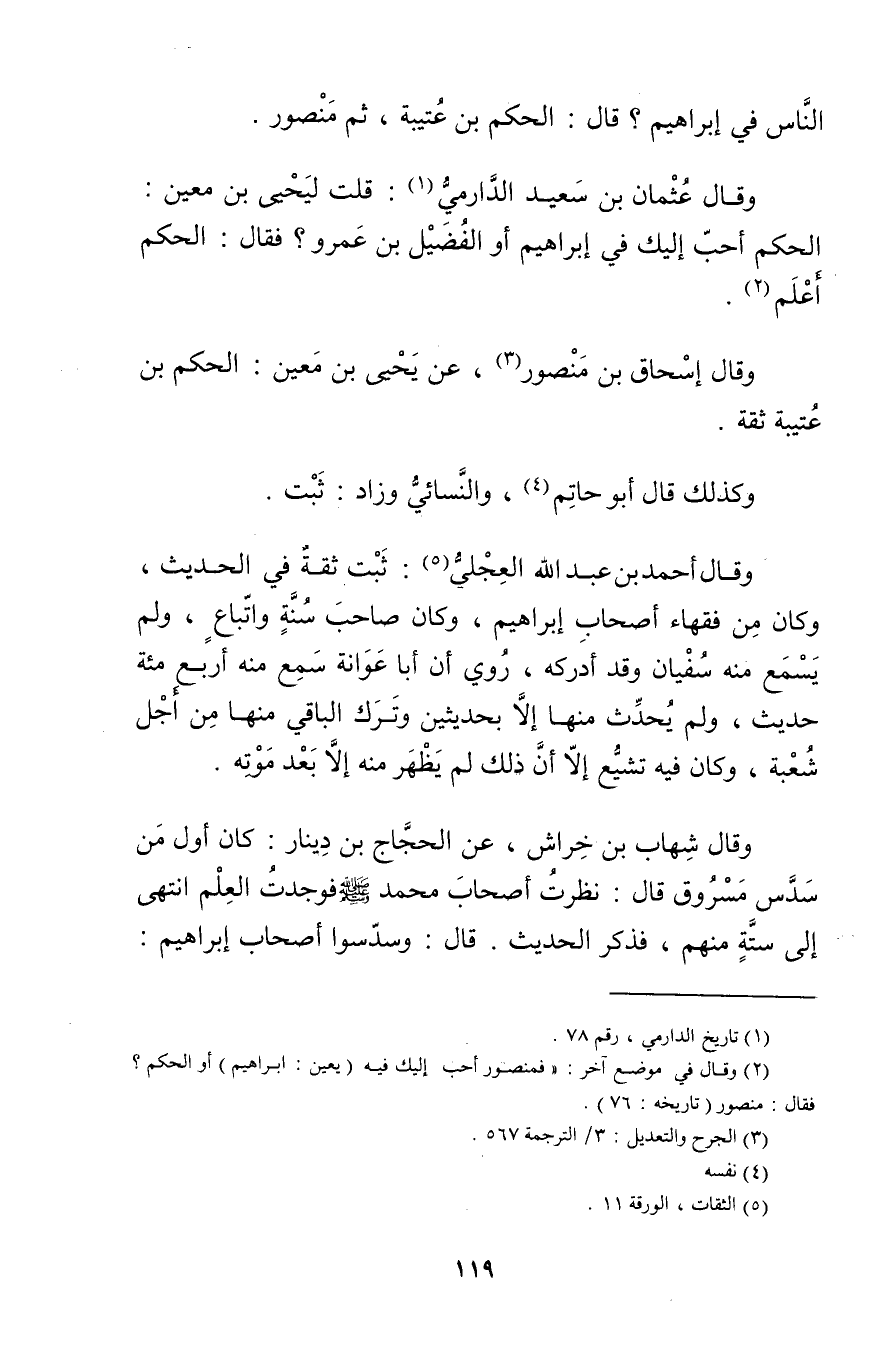 النَّاس في إبراهيم ؟ قال : الحكم بن عُتيبة ، ثم مَنْصور .
وقـال عُثْمان بن سَعيـد الدَّارميُّ(١) : قلت ليَحْيى بن معين :
الحكم أحبّ إليك في إبراهيم أو الفُضَيْل بن عَمرو ؟ فقال : الحكم
أَعْلَم(٢) .
وقال إسْحاق بن مَنْصور(٣) ، عن يَحْيى بن مَعين : الحكم بن
عُتيبة ثقة .
وكذلك قال أبو حاتِم(٤) ، والنَّسائيُّ وزاد : ثَبْت .
وقـال أحمد بن عبـد الله العِجْليُّ(٥) : ثَبْت ثقـةٌ في الحـديث ،
وكان مِن فقهاء أصحابِ إبراهيم ، وكان صاحبَ سُنَّةٍ واتّباعٍ ، ولم
يَسْمَع منه سُفْيان وقد أدركه ، رُوي أن أبا عَوَانة سَمِع منه أربـع مئة
حديث ، ولم يُحدِّث منهـا إلَّا بحديثين وتَـرَك الباقي منهـا مِن أَجْل
شُعْبة ، وكان فيه تشيُّع إلّا أنَّ ذلك لم يَظْهَر منه إلَّا بَعْد مَوْتِه .
وقال شِهاب بن خِراش ، عن الحجَّاج بن دِينار : كان أول مَن
سَدَّس مَسْرُوق قال : نظرتُ أصحابَ محمد ﷺ فوجدتُ العِلْم انتهى
إلى ستَّةٍ منهم ، فذكر الحديث . قال : وسدّسوا أصحاب إبراهيم :
(١) تاريخ الدارمي ، رقم ٧٨ .
(٢) وقـال في موضـع آخر : « فمنصـور أحب إليك فيـه ( يعين : ابـراهيم ) أو الحكم ؟
فقال : منصور ( تاريخه : ٧٦ ) .
(٣) الجرح والتعديل : ٣/ الترجمة ٥٦٧ .
(٤) نفسه
(٥) الثقات ، الورقة ١١ .
١١٩